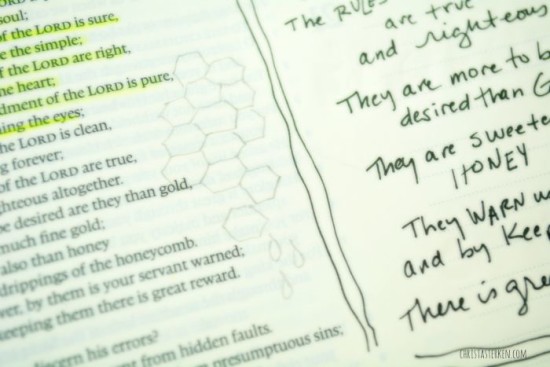 soul;
of the LORD is sure,
the simple;
of the LORD are right,
the heart;
of the LORD is pure,
the eyes;
the LORD is clean,
forever;
of the LORD are true,
altogether.
be desired are they than gold,
much fine gold;
also than honey
drippings of the honeycomb.
by them is your servant warned;
them there is great reward.
his errors?
from hidden faults.
presumptuous sins;
The RULES
are true
and righteous
They are more to b
desired than G
They are sweete
HONEY
They WARN
and by Kee
There is gre
CHRISTASTERKEN.COM